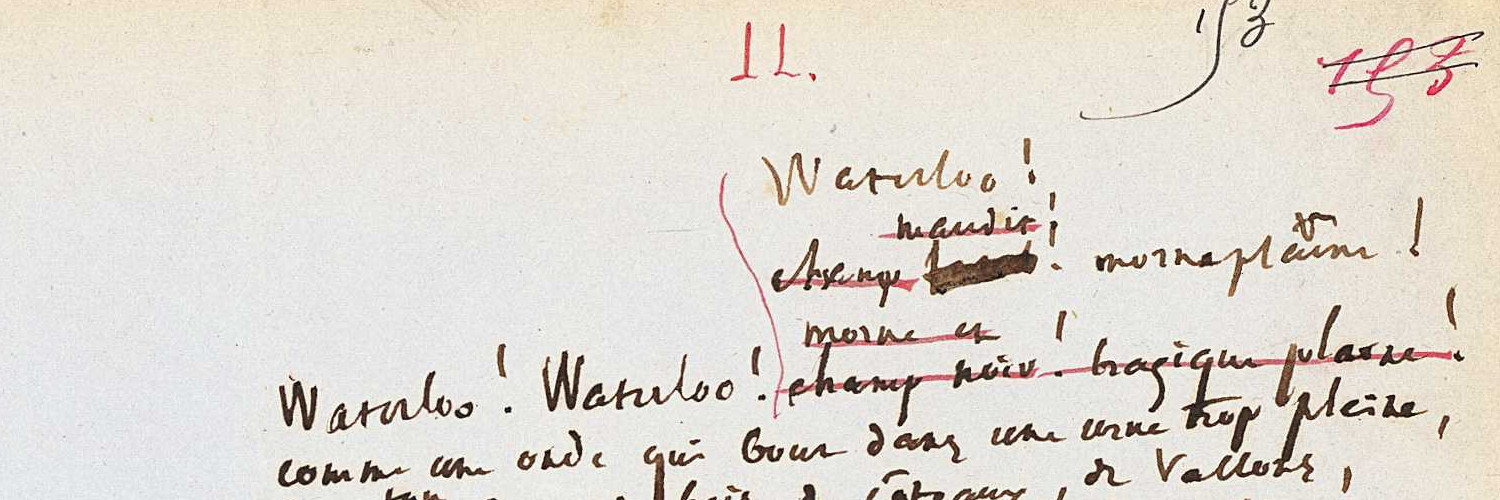 153
II.
153
Waterloo !
maudit !
champ ! morne plaine !
morne et
Waterloo ! Waterloo ! champ noir ! tragique plaine !
comme une onde qui bout dans une urne trop pleine,
de vallons,